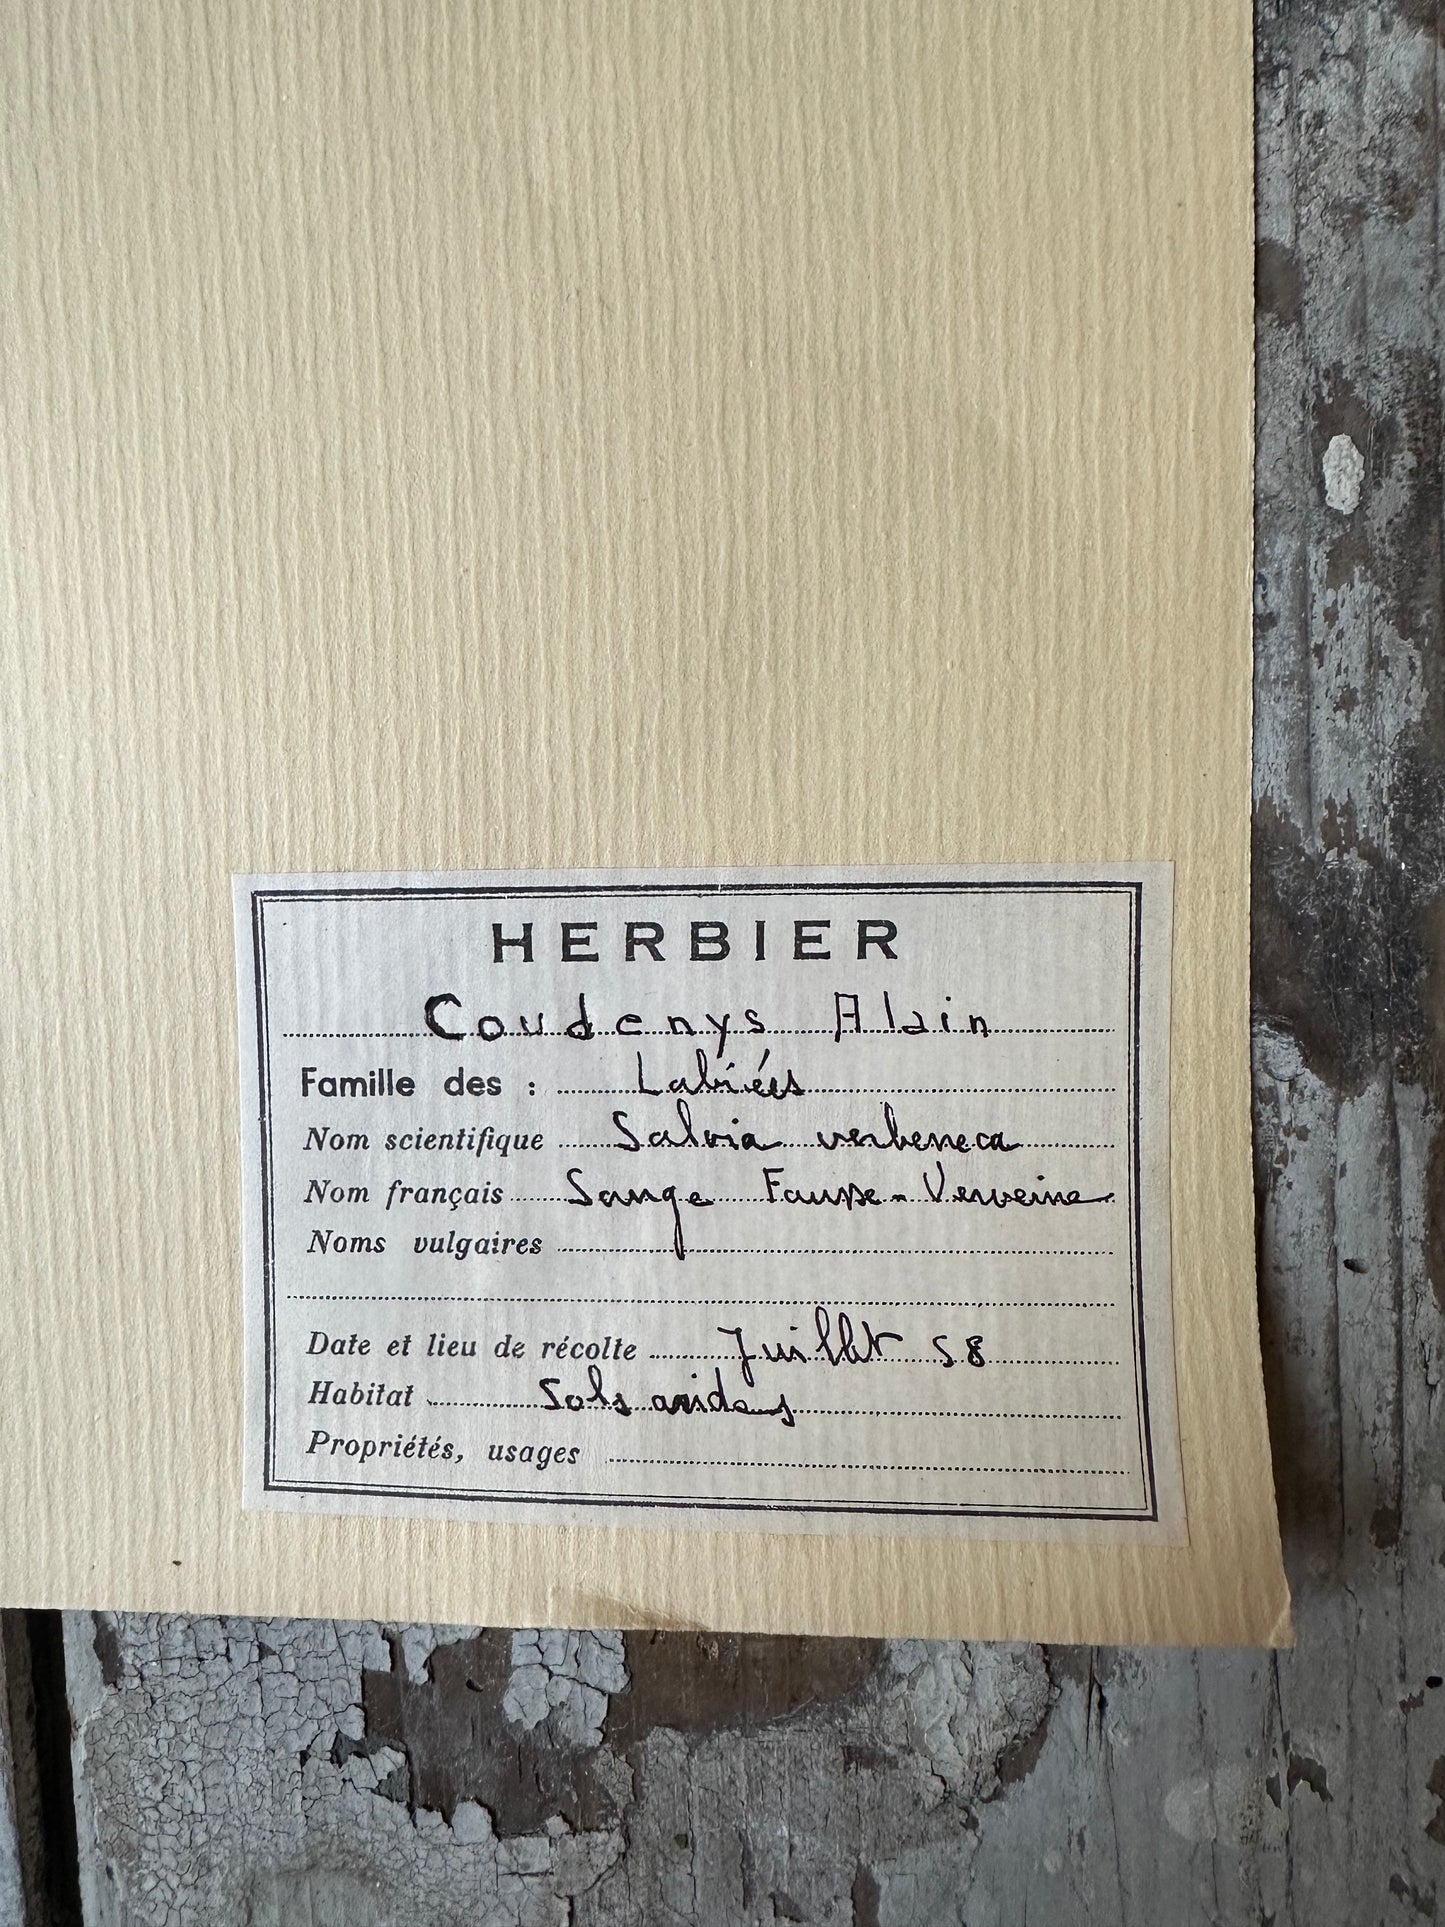 HERBIER
Coudenys Alain
Famille des : Labiées
Nom scientifique Salvia verbeneca
Nom français Sauge Fausse-Verveine
Noms vulgaires
Date et lieu de récolte Juillet 58
Habitat Sols arides
Propriétés, usages